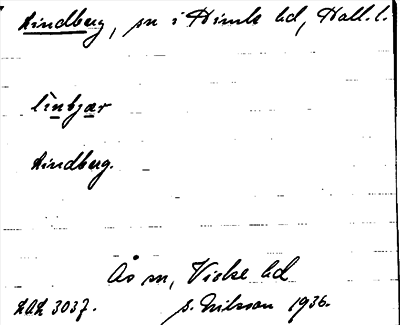 Lindberg, sn i Himle hd, Hall. l.
linbjær
Lindberg.
Ås sn, Viske hd
LUL 3037. S. Nilsson 1936.